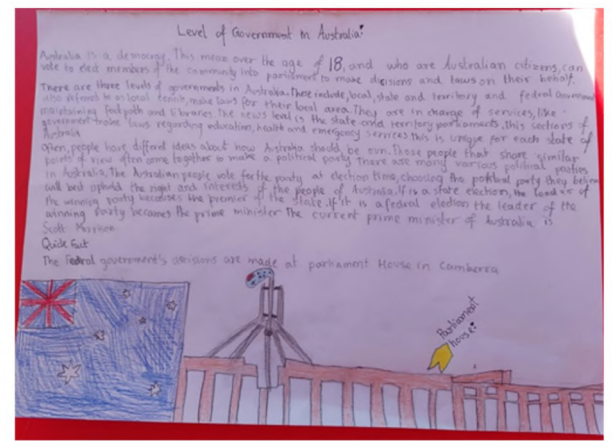 Level of Government in Australia:
Australia is a democracy. This mean over the age of 18, and who are Australian citizens, can
vote to elect members of the community into parliament to make decisions and laws on their behalf.
There are three levels of governments in Australia. These include, local, state and territory and federal Government
also as local make laws for their local area. They are in charge of services, like
maintaining foot path and libraries. The level is the state and territory parliaments, this sections of
government make laws regarding education, health and emergency services this is unique for each state of
Australia
Often, people have different ideas about how Australia should be run. Those people that share similar
points of view often come together to make a political party There are many various political parties
in Australia. The Australian people vote for the party at election time, choosing the political party they believe
will best uphold the right and interests of the people of Australia. If is a state election, the leader of
the winning party becomes the premier of the state. If it is a federal election the leader of the
winning party becomes the prime minister The current prime minister of Australia is
Scott Morrison
Quick Fact
The Federal government's decisions are made at parliament House in Camberra
Parliament
house: